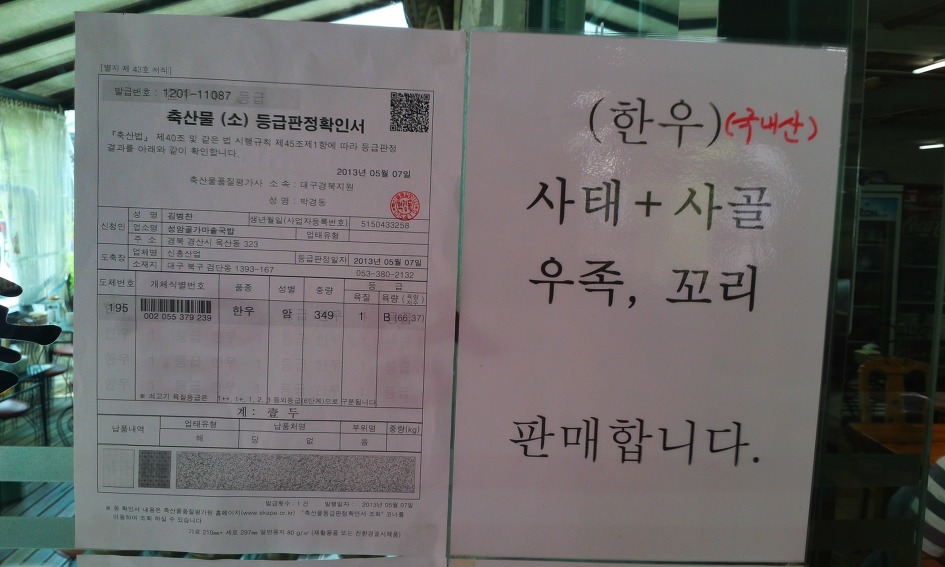 [별지 제 43호 서식]
발급번호 : 1201-11087
등급
축산물 (소) 등급판정확인서
「축산법」 제40조 및 같은 법 시행규칙 제45조제1항에 따라 등급판정
결과를 아래와 같이 확인합니다.
2013년 05월 07일
축산물품질평가사 소 속 : 대구경북지원
성 명 : 박경동
신청인 성 명 김병찬 생년월일(사업자등록번호) 5150433258
업소명 청암골가마솥국밥 업태유형
주 소 경북 경산시 옥산동 323
도축장 업체명 신흥산업 등급판정일자 2013년 05월 07일
소재지 대구 북구 검단동 1393-167 053-380-2132
도체번호 개체식별번호 품종 성별 중량 등 급
육질 육량 (육량지수)
195 002 055 379 239 한우 암 349 1 B (66.37)
※ 쇠고기 육질등급은 1++, 1+, 1, 2, 3 등외등급(6단계)으로 구분됩니다.
계 : 합 두
납품내역 업태유형 납품처명 부위명 중량(kg)
해 당 없 음
발급횟수 : 1 건 발행일자 : 2013년 05월 07일
※ 동 확인서 내용은 축산물품질평가원 홈페이지(www.ekape.or.kr) "축산물등급판정확인서 조회" 코너를
이용하여 조회 하실 수 있습니다.
가로 210㎜× 세로 297㎜ 일반용지 60 g/㎡ (재활용품 또는 친환경공시제품)
(한우)(국내산)
사태+사골
우족, 꼬리
판매합니다.